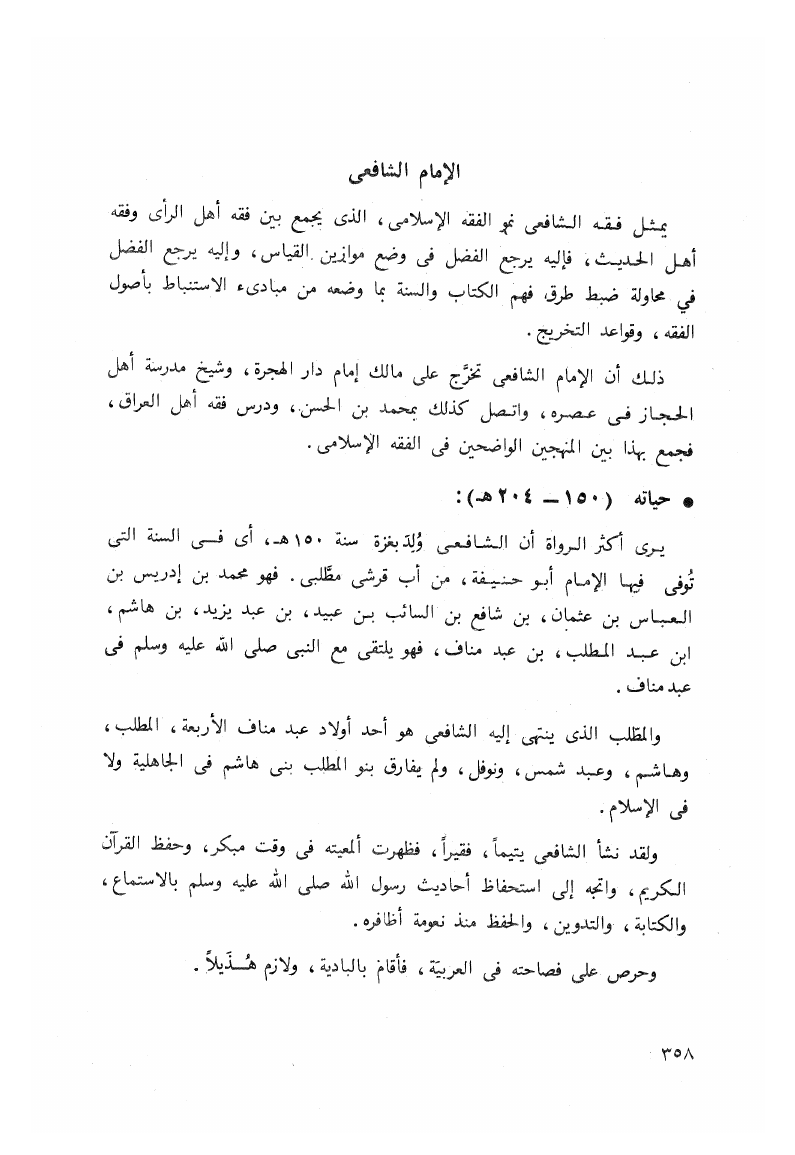 الإمام الشافعى
يمثل فقه الشافعى نمو الفقه الإسلامى، الذى يجمع بين فقه أهل الرأى وفقه
أهل الحديث، فإليه يرجع الفضل فى وضع موازين القياس، وإليه يرجع الفضل
في محاولة ضبط طرق فهم الكتاب والسنة بما وضعه من مبادىء الاستنباط بأصول
الفقه، وقواعد التخريج.
ذلك أن الإمام الشافعى تخرَّج على مالك إمام دار الهجرة، وشيخ مدرسة أهل
الحجاز فى عصره، واتصل كذلك بمحمد بن الحسن، ودرس فقه أهل العراق،
فجمع بهذا بين المنهجين الواضحين فى الفقه الإسلامى.
• حياته (١٥٠ — ٢٠٤هـ):
يرى أكثر الرواة أن الشافعى وُلِدَ بغزة سنة ١٥٠هـ، أى فى السنة التى
تُوفى فيها الإمام أبو حنيفة، من أب قرشى مطَّلبى. فهو محمد بن إدريس بن
العباس بن عثمان، بن شافع بن السائب بن عبيد، بن عبد يزيد، بن هاشم،
ابن عبد المطلب، بن عبد مناف، فهو يلتقى مع النبى صلى الله عليه وسلم فى
عبد مناف.
والمطّلب الذى ينتهى إليه الشافعى هو أحد أولاد عبد مناف الأربعة، المطلب،
وهاشم، وعبد شمس، ونوفل، ولم يفارق بنو المطلب بنى هاشم فى الجاهلية ولا
فى الإسلام.
ولقد نشأ الشافعى يتيماً، فقيراً، فظهرت ألمعيته فى وقت مبكر، وحفظ القرآن
الكريم، واتجه إلى استحفاظ أحاديث رسول الله صلى الله عليه وسلم بالاستماع،
والكتابة، والتدوين، والحفظ منذ نعومة أظافره.
وحرص على فصاحته فى العربيّة، فأقام بالبادية، ولازم هُذَيلاً.
٣٥٨